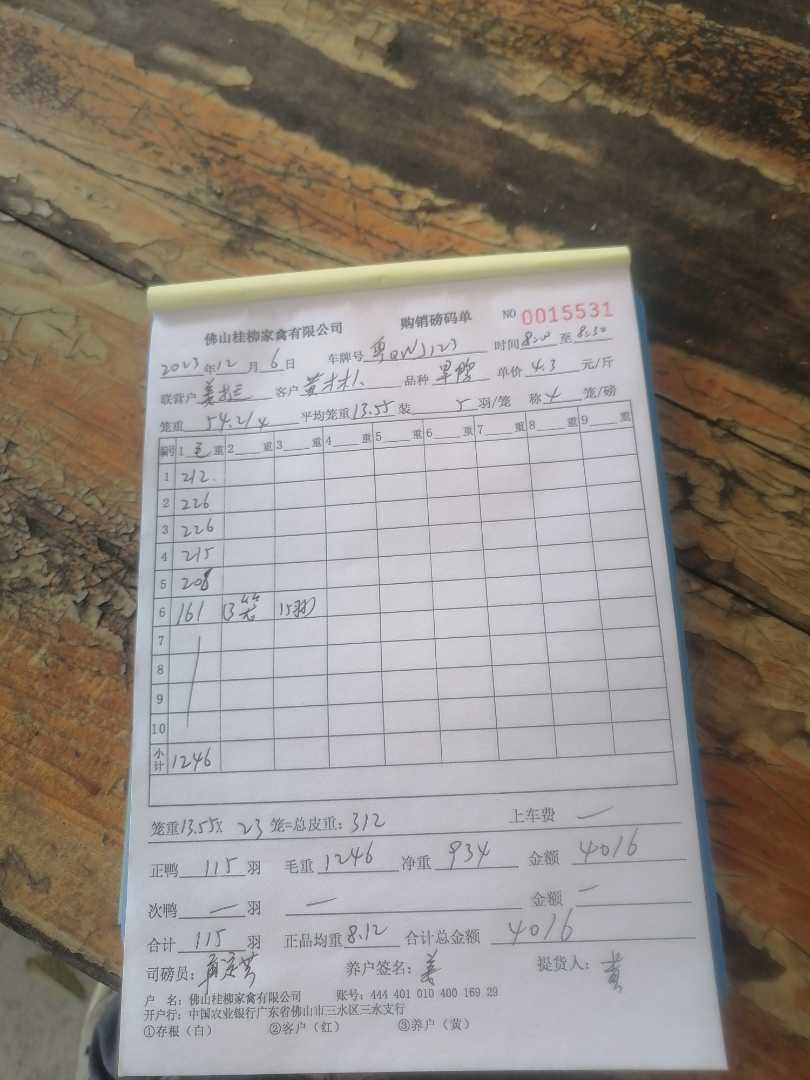 佛山桂柳家禽有限公司 购销磅码单 NO 0015531
2023年12月6日 车牌号 粤QWJ123 时间8:20至8:50
联营户 客户 黄木林 品种 单价 4.3 元/斤
笼重 54.2/4 平均笼重13.55 装 5 羽/笼 称 4 笼/磅
编号 1 毛 重 2 重 3 重 4 重 5 重 6 重 7 重 8 重 9 重
1 212
2 226
3 226
4 215
5 208
6 161 (3笼 15羽)
7
8
9
10
小计 1246
笼重13.55× 23 笼=总皮重:312 上车费 —
正鸭 115 羽 毛重 1246 净重 934 金额 4016
次鸭 — 羽 — 金额 —
合计 115 羽 正品均重8.12 合计总金额 4016
司磅员: 养户签名:姜 提货人:黄
户 名:佛山桂柳家禽有限公司 账号:444 401 010 400 169 29
开户行:中国农业银行广东省佛山市三水区三水支行
①存根(白) ②客户(红) ③养户(黄)